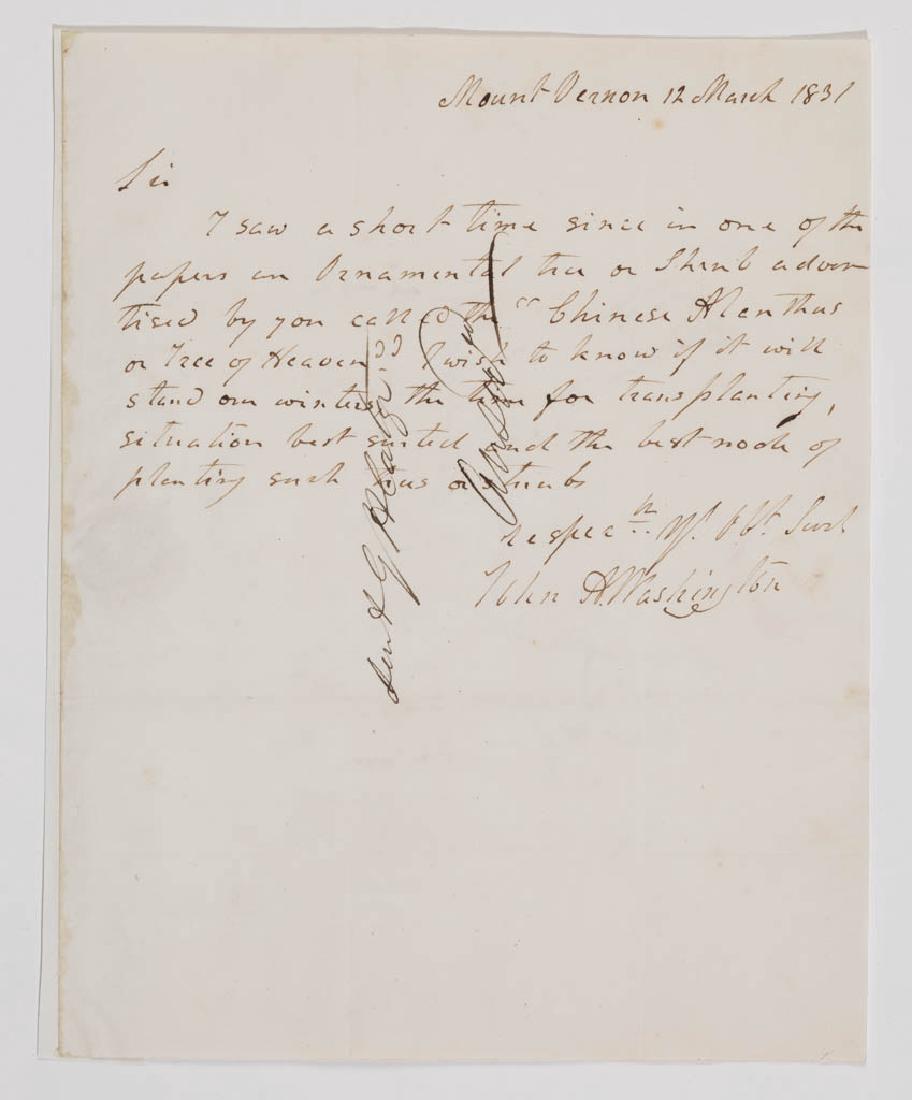 Mount Vernon 12 March 1831
Sir
I saw a short time since in one of the
papers an Ornamental tree or Shrub adver
tised by you called the "Chinese Alenthus
or Tree of Heaven" I wish to know if it will
stand our winters the time for transplanting,
situation best suited and the best mode of
planting such trees or shrubs
respec Yr. Obt. Servt
John A. Washington